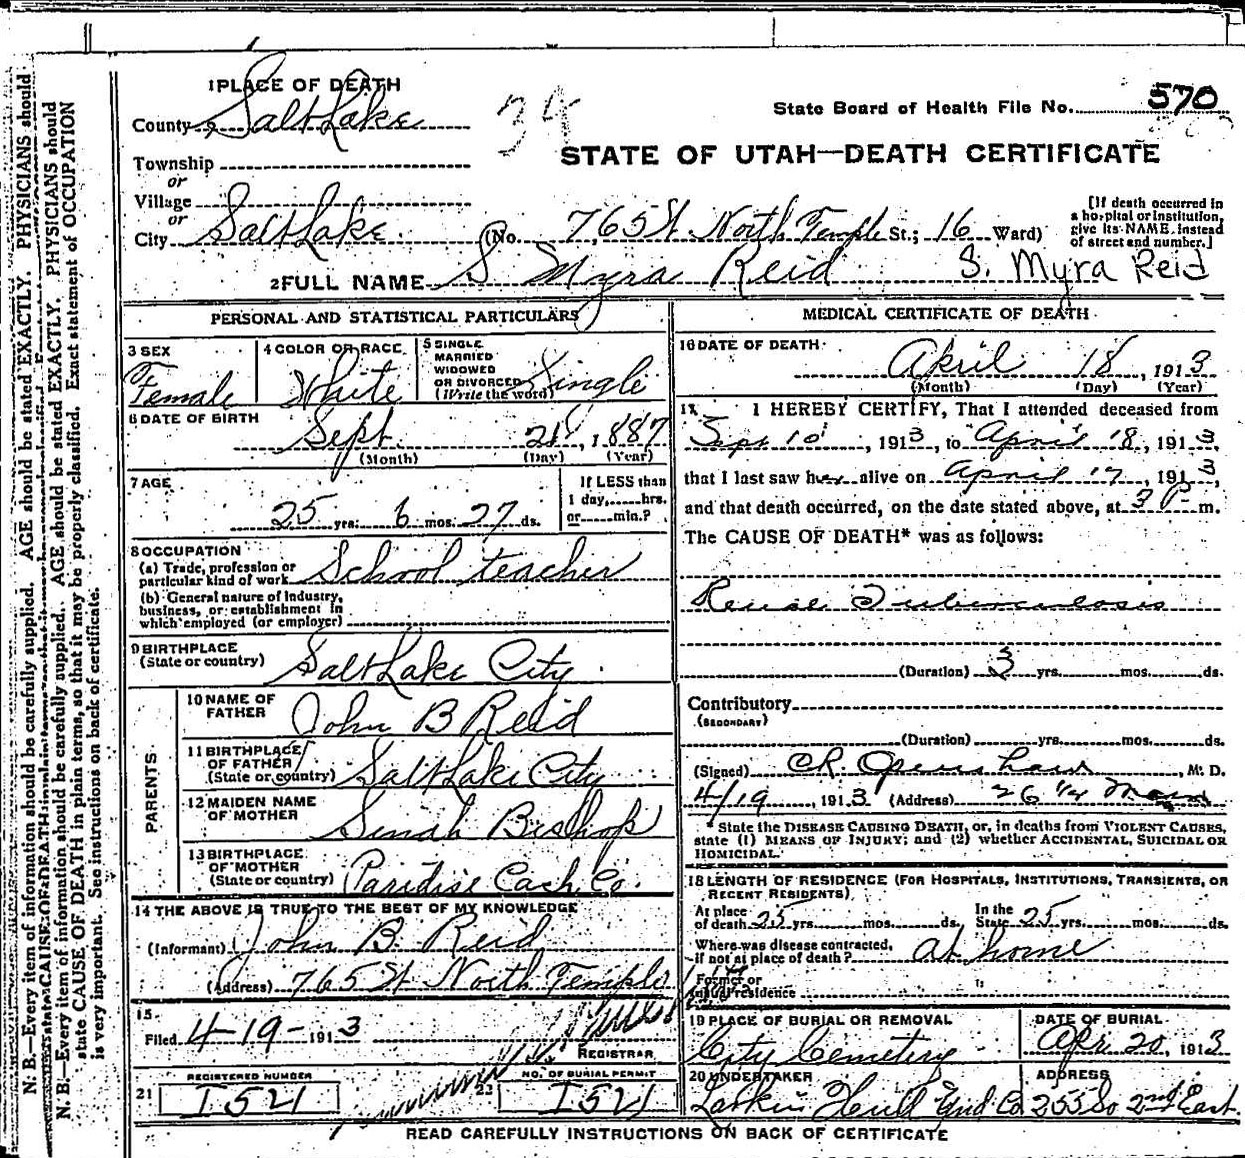 N. B.—Every item of information should be carefully supplied. AGE should be stated EXACTLY. PHYSICIANS should
state CAUSE OF DEATH in plain terms, so that it may be properly classified. Exact statement of OCCUPATION
is very important. See instructions on back of certificate.
1 PLACE OF DEATH
County Salt Lake
34
State Board of Health File No. 570
Township
or
Village
or
City Salt Lake
STATE OF UTAH—DEATH CERTIFICATE
(No. 765 St North Temple St.; 16 Ward)
[If death occurred in
a hospital or institution,
give its NAME instead
of street and number.]
2 FULL NAME S Myra Reid S. Myra Reid
PERSONAL AND STATISTICAL PARTICULARS
3 SEX
Female
4 COLOR OR RACE
White
5 SINGLE
MARRIED
WIDOWED
OR DIVORCED
(Write the word)
Single
6 DATE OF BIRTH
Sept. 21, 1887
(Month) (Day) (Year)
7 AGE
25 yrs. 6 mos. 27 ds.
If LESS than
1 day, hrs.
or min.?
8 OCCUPATION
(a) Trade, profession or
particular kind of work School teacher
(b) General nature of Industry,
business, or establishment in
which employed (or employer)
9 BIRTHPLACE
(State or country) Salt Lake City
PARENTS
10 NAME OF
FATHER John B Reid
11 BIRTHPLACE
OF FATHER
(State or country) Salt Lake City
12 MAIDEN NAME
OF MOTHER Sinah Bishop
13 BIRTHPLACE
OF MOTHER
(State or country) Paridise Cach. Co.
14 THE ABOVE IS TRUE TO THE BEST OF MY KNOWLEDGE
(Informant) John B. Reid
(Address) 765 St North Temple
15
Filed 4-19- 1913
REGISTRAR
21 REGISTERED NUMBER
I521
22 NO. OF BURIAL PERMIT
I521
MEDICAL CERTIFICATE OF DEATH
16 DATE OF DEATH
April 18, 1913
(Month) (Day) (Year)
17 I HEREBY CERTIFY, That I attended deceased from
Sept 10, 1913, to April 18, 1913,
that I last saw her alive on April 17, 1913,
and that death occurred, on the date stated above, at 3 P m.
The CAUSE OF DEATH* was as follows:
Tuberculosis
(Duration) 3 yrs. mos. ds.
Contributory
(SECONDARY)
(Duration) yrs. mos. ds.
(Signed) C.R. Openshaw M. D.
4/19, 1913 (Address) 26 1/2 Main
* State the DISEASE CAUSING DEATH, or, in deaths from VIOLENT CAUSES,
state (1) MEANS OF INJURY; and (2) whether ACCIDENTAL, SUICIDAL OR
HOMICIDAL.
18 LENGTH OF RESIDENCE (FOR HOSPITALS, INSTITUTIONS, TRANSIENTS, OR
RECENT RESIDENTS)
At place
of death 25 yrs. mos. ds.
In the
State 25 yrs. mos. ds.
Where was disease contracted,
if not at place of death? at home
Former or
usual residence
19 PLACE OF BURIAL OR REMOVAL
City Cemetery
DATE OF BURIAL
Apr. 20, 1913
20 UNDERTAKER
Larkin Hull Und. Co
ADDRESS
255 So 2nd East.
READ CAREFULLY INSTRUCTIONS ON BACK OF CERTIFICATE